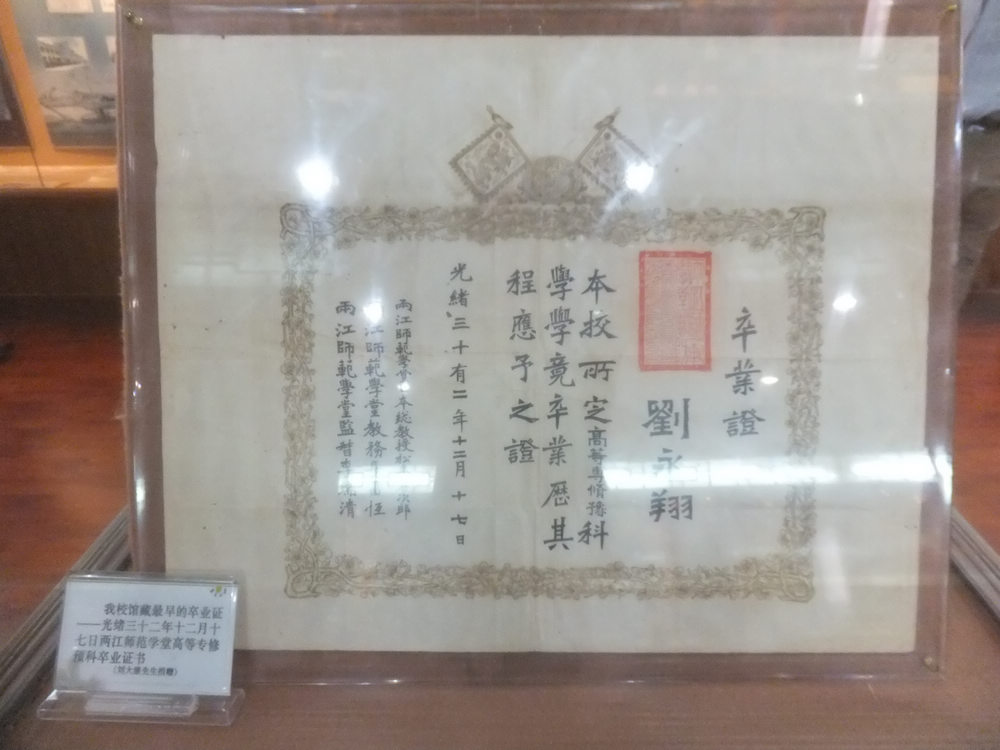 卒業證
劉永翔
本校所定高等專修豫科
學學竟卒業歷其
程應予之證
光緒三十有二年十二月十七日
兩江師範學堂總教授松本
江師範學堂教務
兩江師範學堂監督清
我校馆藏最早的卒业证
——光绪三十二年十二月十
七日两江师范学堂高等专修
预科卒业证书